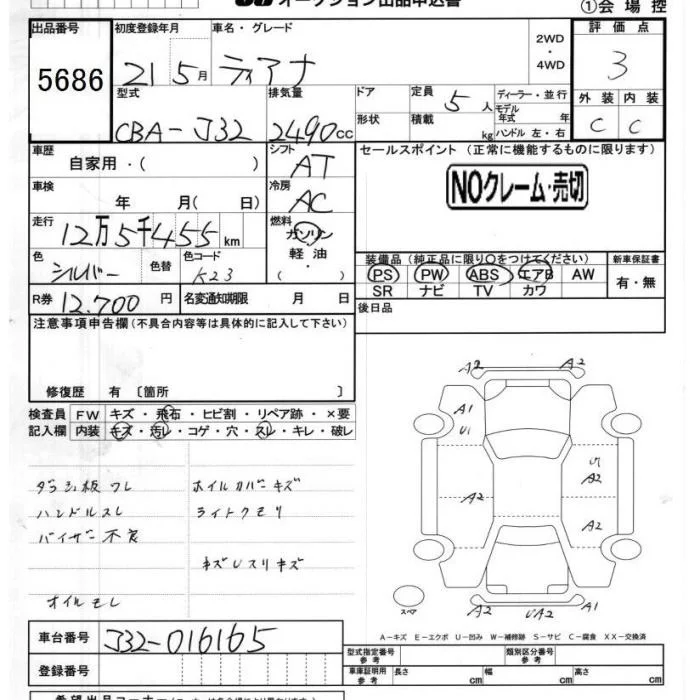 オークション出品申込書
①会場控
出品番号 初度登録年月 車名・グレード 2WD・4WD 評価点
5686 21 5月 ティアナ 3
型式 排気量 ドア 定員 5人 ディーラー・並行 外装 内装
CBA-J32 2490cc 形状 積載 kg モデル年式 年 ハンドル 左・右 C C
車歴 自家用・( ) シフト AT セールスポイント (正常に機能するものに限ります)
車検 年 月( 日) 冷房 AC NOクレーム・売切
走行 12万5千455km 燃料 ガソリン 軽油 ・( )
色 シルバー 色替 色コード K23
装備品 (純正品に限り○をつけてください) 新車保証書
PS PW ABS エアB AW 有・無
SR ナビ TV カワ
R券 12,700円 名変通知期限 月 日 後日品
注意事項申告欄(不具合内容等は具体的に記入して下さい)
修復歴 有 〔箇所 〕
検査員 FW キズ・飛石・ヒビ割・リペア跡・×要
記入欄 内装 キズ・汚レ・コゲ・穴・スレ・キレ・破レ
ダッシュ板ワレ ホイルカバーキズ
ハンドルスレ ライトクモリ
バイザー不良
キズUスリキズ
オイルモレ
A2 A2
A1
U1 U1
A2 A2
A2
スペア A2 UA2 A1
A-キズ E-エクボ U-凹み W-補修跡 S-サビ C-腐食 XX-交換済
車台番号 J32-016165
型式指定番号 参考 類別区分番号 参考
登録番号 車庫証明用 参考 長さ cm 幅 cm 高さ cm